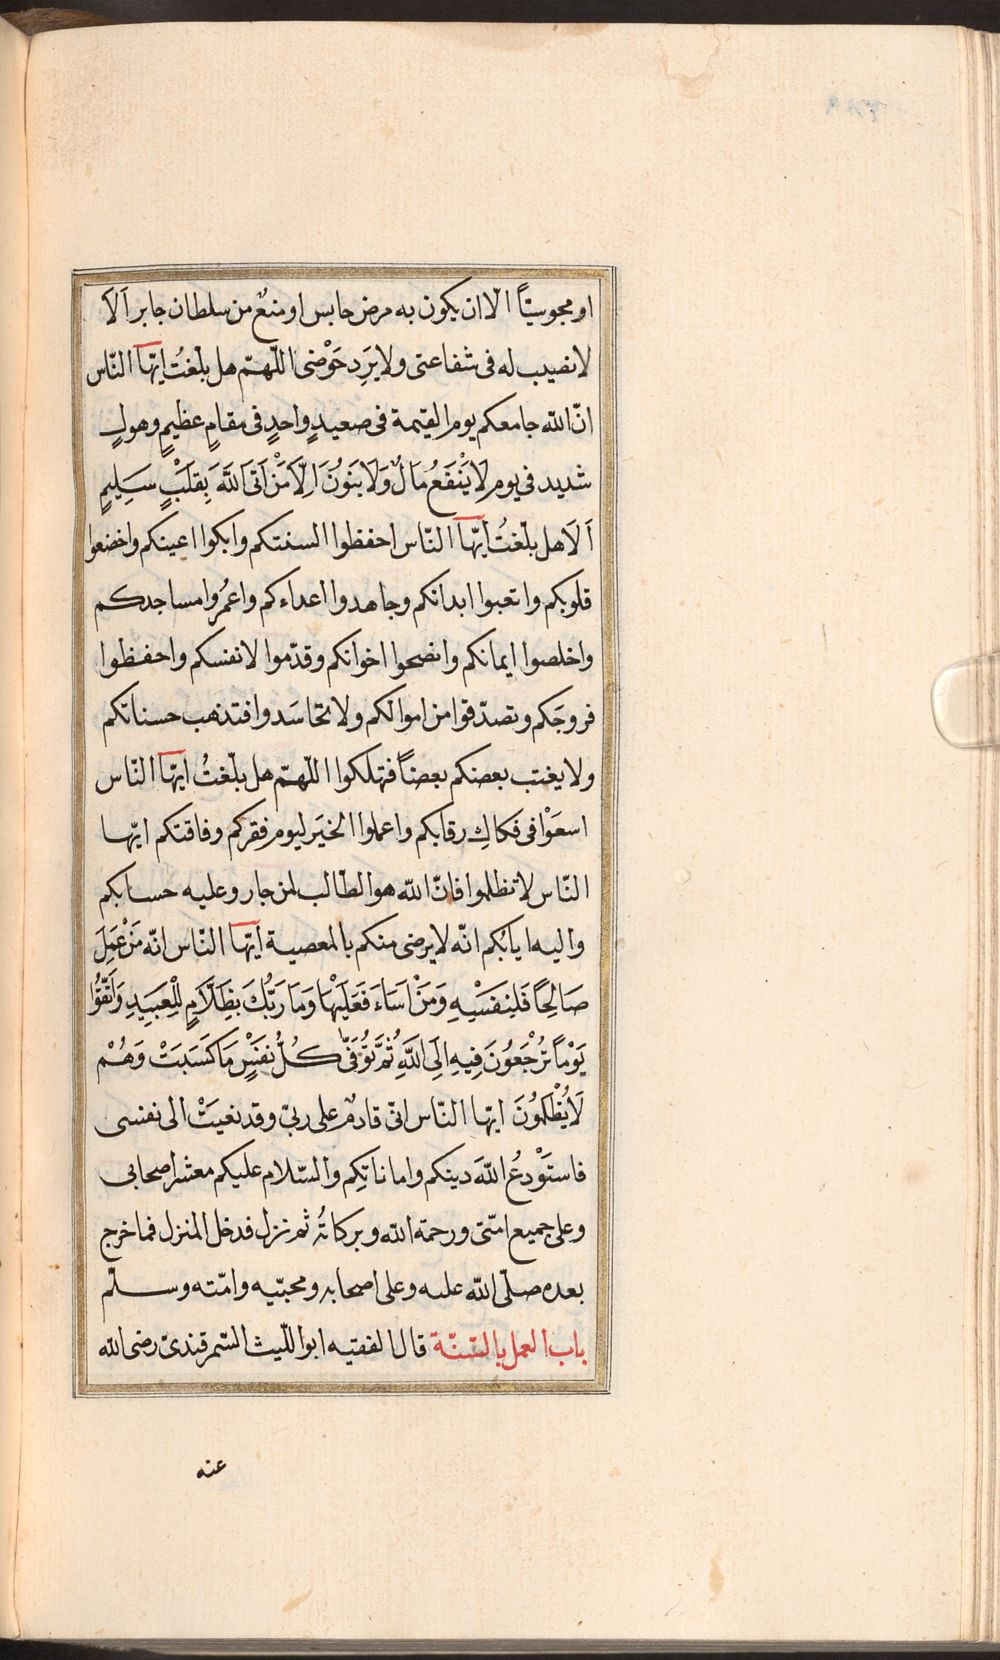 او مجوسيّاً الّا ان يكون به مرض حابس او منعٌ من سلطان جابر اَلَا
لا نصيب له فى شفاعتى ولا يَرِد حَوْضى اللّهمّ هل بلّغتُ ايّها النّاس
انّ الله جامعكم يوم القيٰمة فى صعيدٍ واحدٍ فى مقامٍ عظيمٍ وهولٍ
شديد فى يوم لَا يَنْفَعُ مَالٌ وَلَا بَنُونَ اِلَّا مَنْ اَتَى اللّٰهَ بِقَلْبٍ سَلِيمٍ
اَلَا هل بلّغتُ ايّها النّاس احفظوا السنتكم وابكوا اعينكم واخضعوا
قلوبكم واتعبوا ابدانكم وجاهدوا اعداءكم واعمُروا مساجدكم
واخلصوا ايمانكم وانصحوا اخوانكم وقدّموا لانفسكم واحفظوا
فروجَكم وتصدّقوا من اموالكم ولا تحاسَدوا فتذهب حسناتكم
ولا يغتب بعضكم بعضاً فتهلكوا اللّهمّ هل بلّغتُ ايّها النّاس
اسعَوْا فى فَكاكِ رقابكم واعملوا الخيَر ليوم فقركم وفاقتكم ايّها
النّاس لا تظلموا فانّ الله هو الطّالب لمن جار وعليه حسابكم
واليه ايابُكم انّه لا يرضى منكم بالمعصية ايّها النّاس انّه مَنْ عَمِلَ
صَالِحًا فَلِنَفْسِهِ وَمَنْ اَسَاءَ فَعَلَيْهَا وَمَا رَبُّكَ بِظَلَّامٍ لِلْعَبِيدِ وَاتَّقُوا
يَوْماً تُرْجَعُونَ فِيهِ اِلَى اللّٰهِ ثُمَّ تُوَفّٰى كُلُّ نَفْسٍ مَا كَسَبَتْ وَهُمْ
لَا يُظْلَمُونَ ايّها النّاس انّى قادمٌ على ربّى وقد نعيَتْ الى نفسى
فاستَوْدعُ اللّٰهَ دينكم واماناتِكم والسّلام عليكم معشر اصحابى
وعلى جميع امّتى ورحمة الله وبركاتُه ثم نزل فدخل المنزل فما خرج
بعده صلّى الله عليه وعلى اصحابه ومحبّيه وامّته وسلّم
باب العمل بالسّنّة قال الفقيه ابو اللّيث السّمرقندىّ رضى الله
عنه